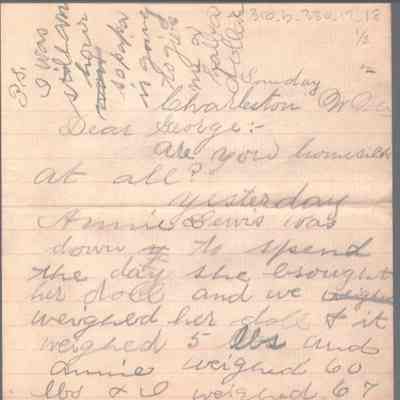 P.S.
I was
still am
higher
so papa
is going
to give
me
half a
dollar
Sunday
Charleston W Va
Dear George:-
Are you homesick
at all?
yesterday
Annie Lewis was
down to spend
the day she brought
her doll and we
weighed her doll & it
weighed 5 lbs and
Annie weighed 60
lbs & I weighed 67